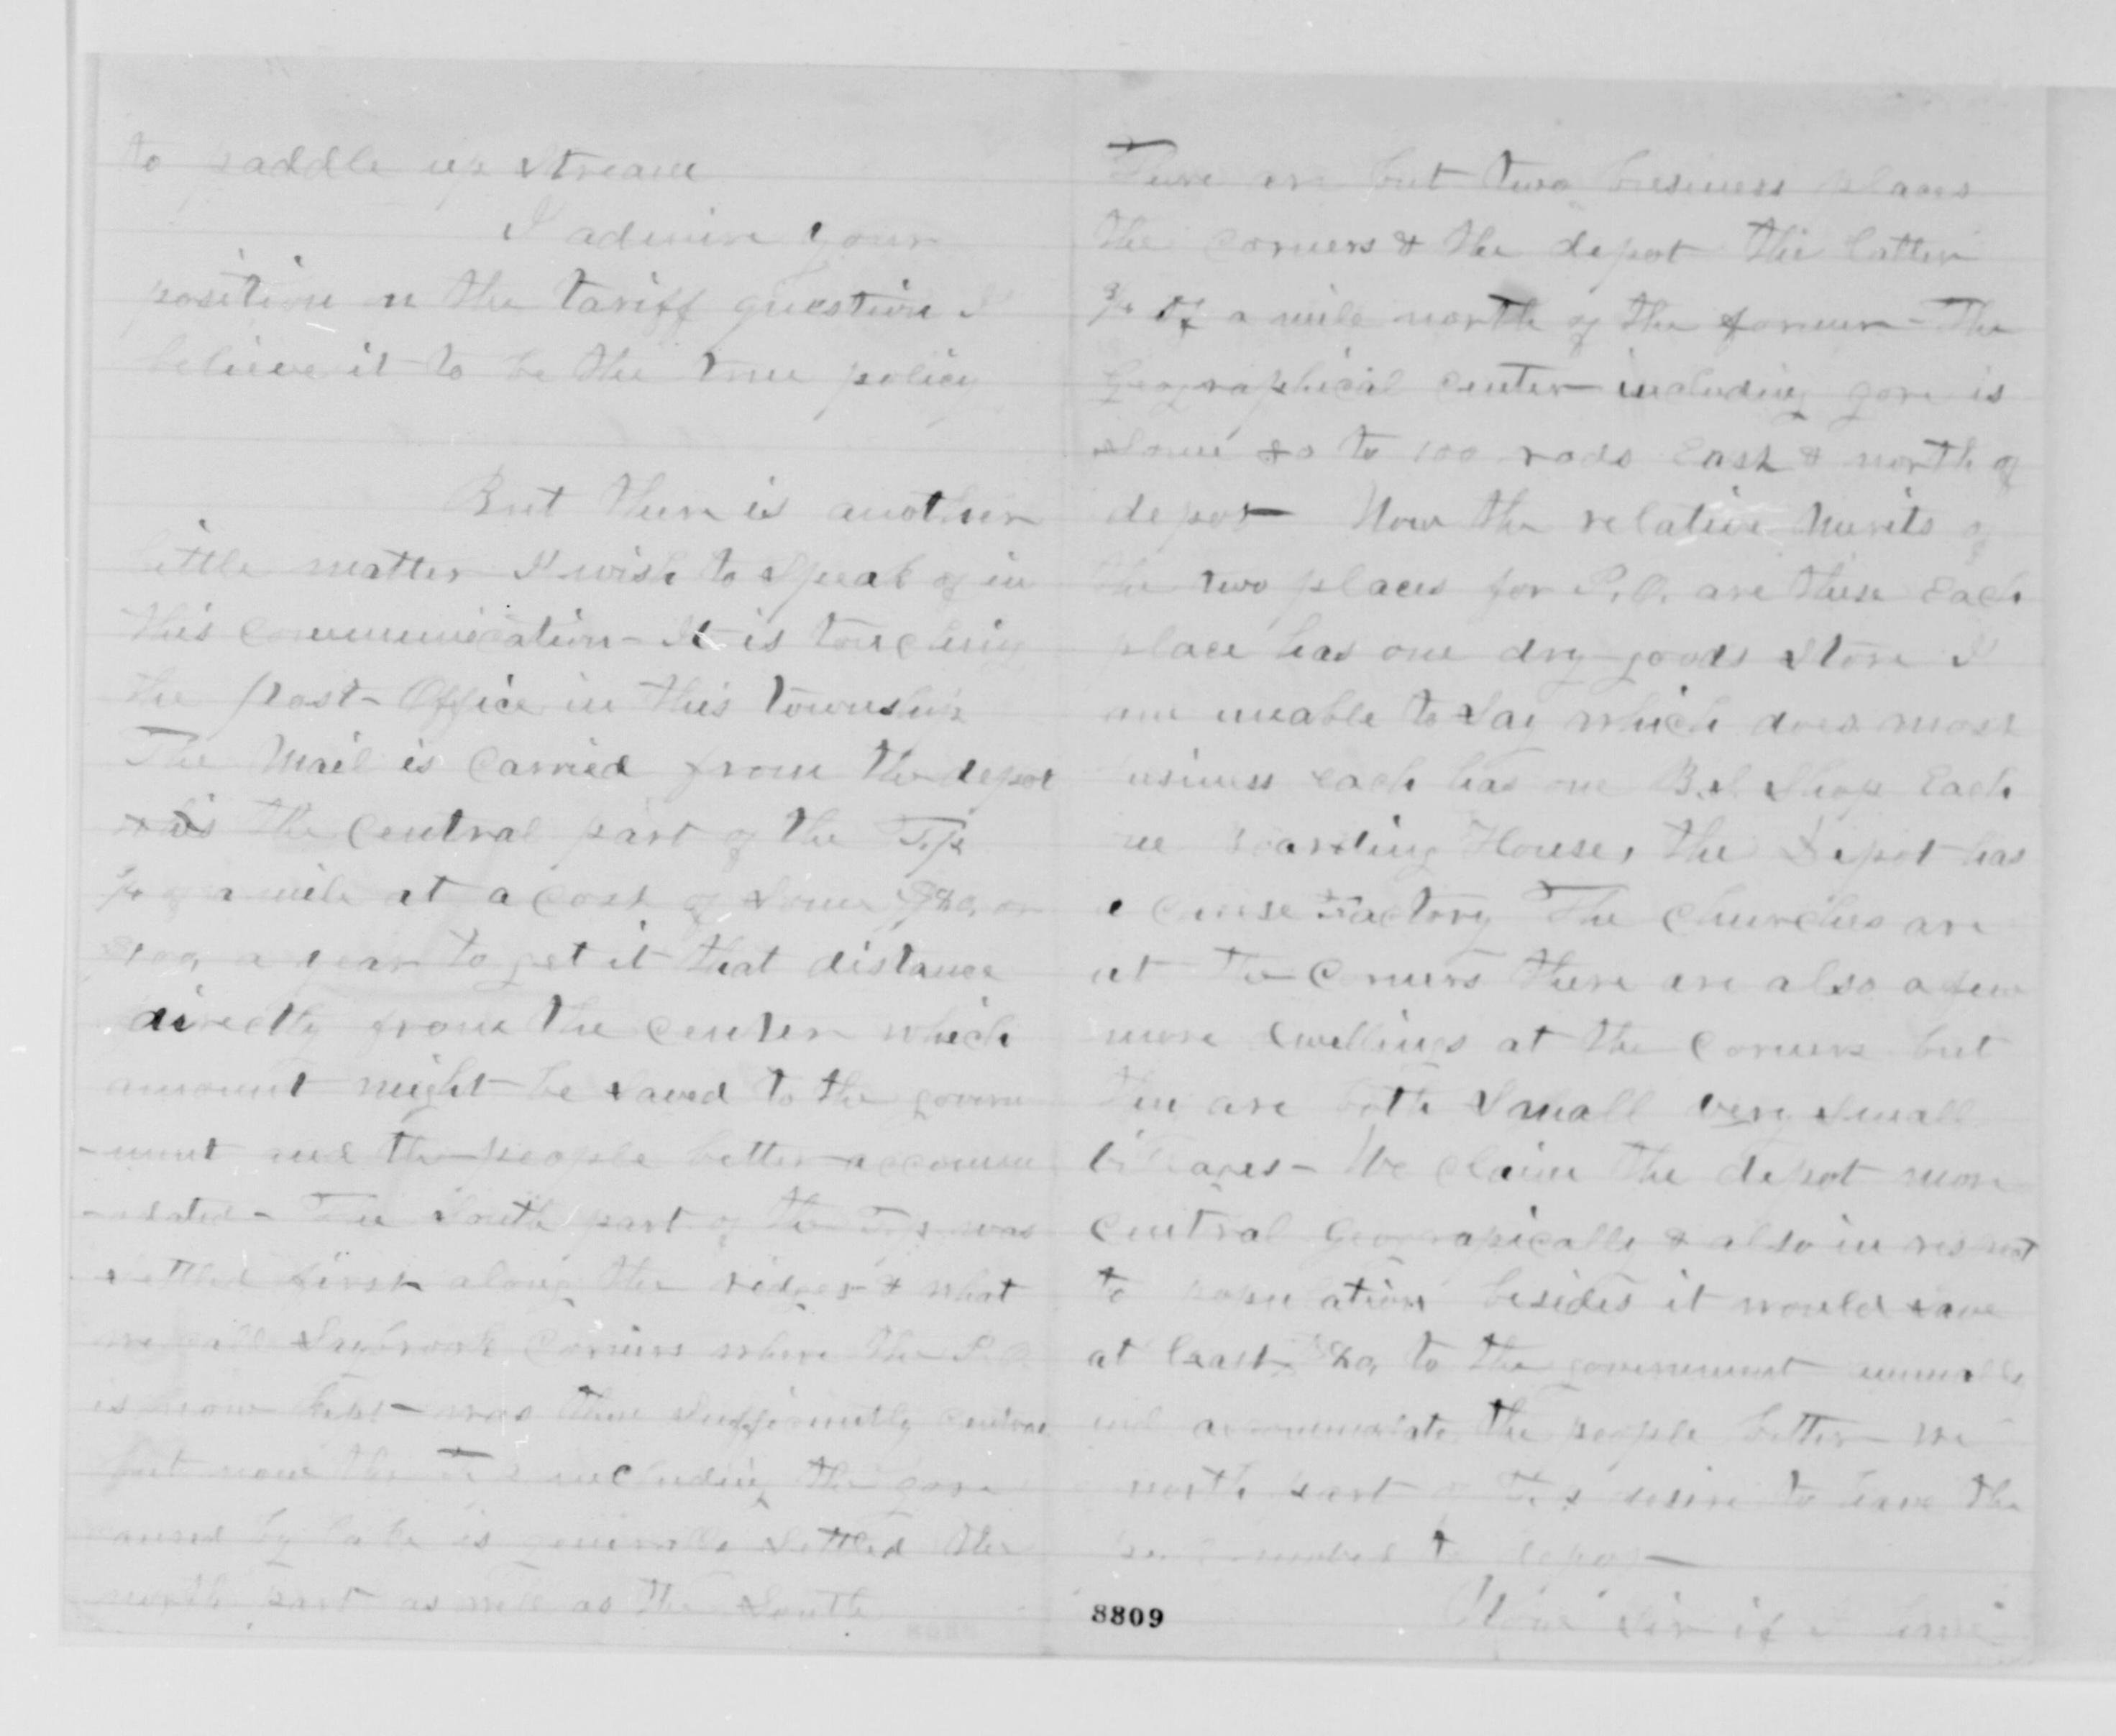 to paddle up stream
I admire your
position on the tariff question I
believe it to be the true policy
But there is another
little matter I wish to speak of in
this communication - It is touching
the post-Office in this township
The Mail is carried from the depot
the central part of the T.p.
3/4 of a mile at a cost of some $80, or
$100, a year to get it that distance
directly from the center which
amount might be saved to the govern
-ment and the people better accomm
-odated - The South part of the T.p. was
settled first along the ridges & what
we call Saybrook Corners where the P.O.
is now kept - was then sufficiently central
but now the T.p. including the gore
caused by lake is generally settled the
north part as well as the South
There are but two business places
the corners & the depot the latter
3/4 of a mile north of the former - The
Geographical center including gore is
some 80 to 100 rods East & north of
depot - Now the relative merits of
the two places for P.O. are these Each
place has one dry goods store I
am unable to say which does most
business each has one B.S. Shop Each
one Boarding House, the Depot has
a Cheese Factory The churches are
at the Corners there are also a few
more dwellings at the Corners but
they are both Small very small
villages - We claim the depot more
central Geograpically & also in respect
to population besides it would save
at least $80, to the government annually
and accommodate the people better - We
north part of T.p. desire to have the
moved to depot -
Now Sir if
8809